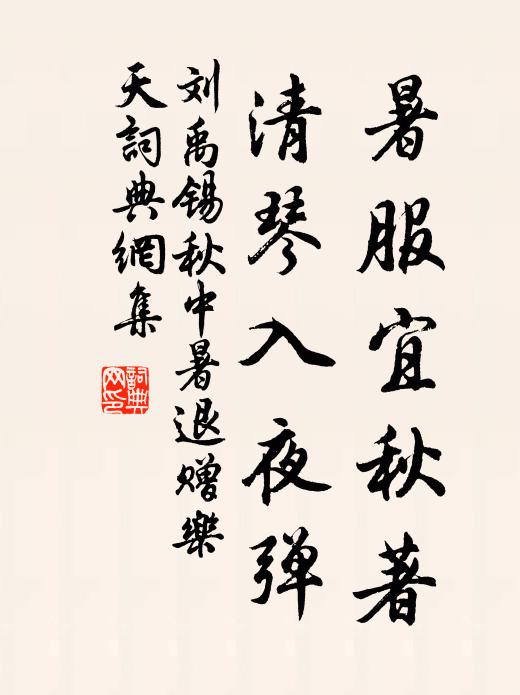 暑服宜秋著
清琴入夜弹
刘禹锡秋中暑退赠樂
天詞典網集
詞典网印